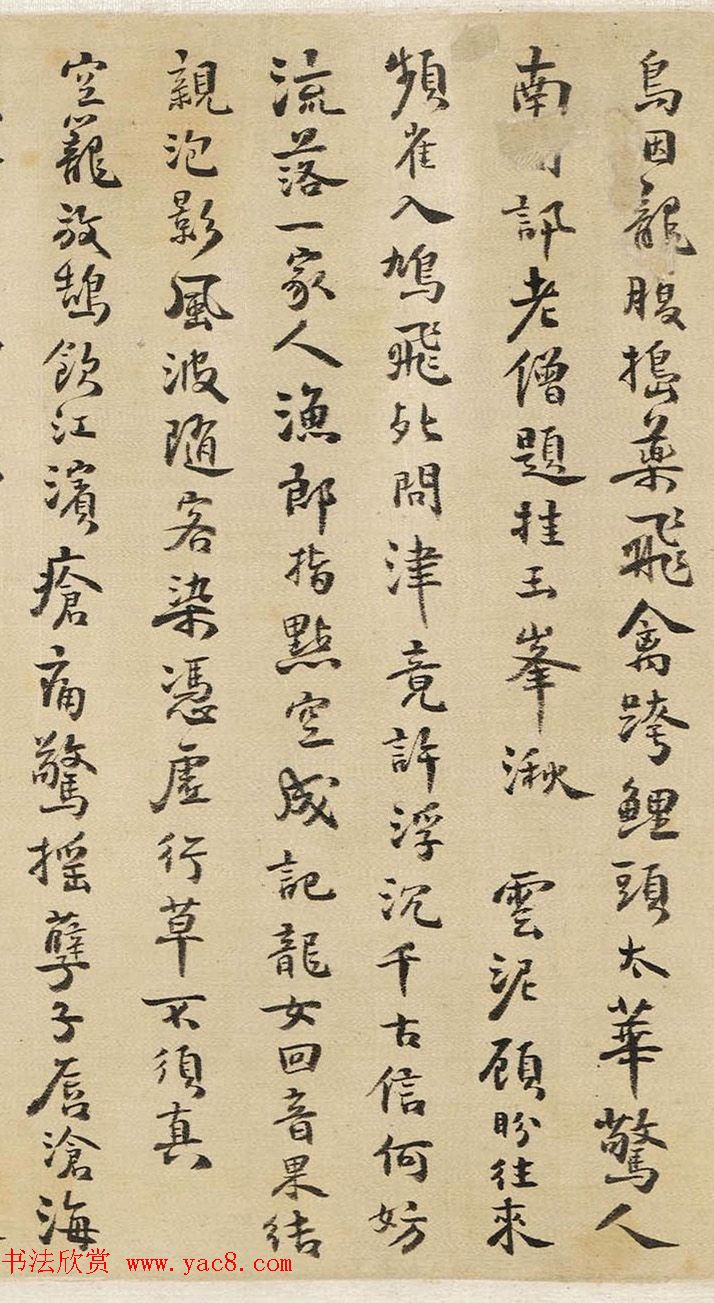 鳥因龍腹搗藥飛禽跨鯉頭太華驚人
南訊老僧題挂玉峯湫 雲泥顧盼往來
頻雀入鳩飛此問津竟許浮沉千古信何妨
流落一家人漁郎指點空成記龍女回音果結
親泡影風波隨客染憑虛行草不須真
空籠放鵠飲江濱瘡痛驚搖孽子脣滄海
书法欣赏 www.yac8.com